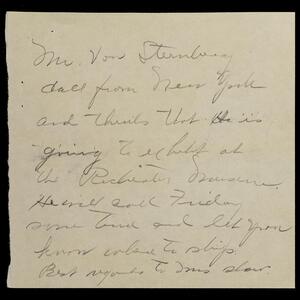 Mr. Von Sternberg
call from New York
and thinks that He is
going to exhibit at
the Rochester Museum.
He will call Friday
some time and let you
know where to ship.
Best regards to Mrs Shaw.